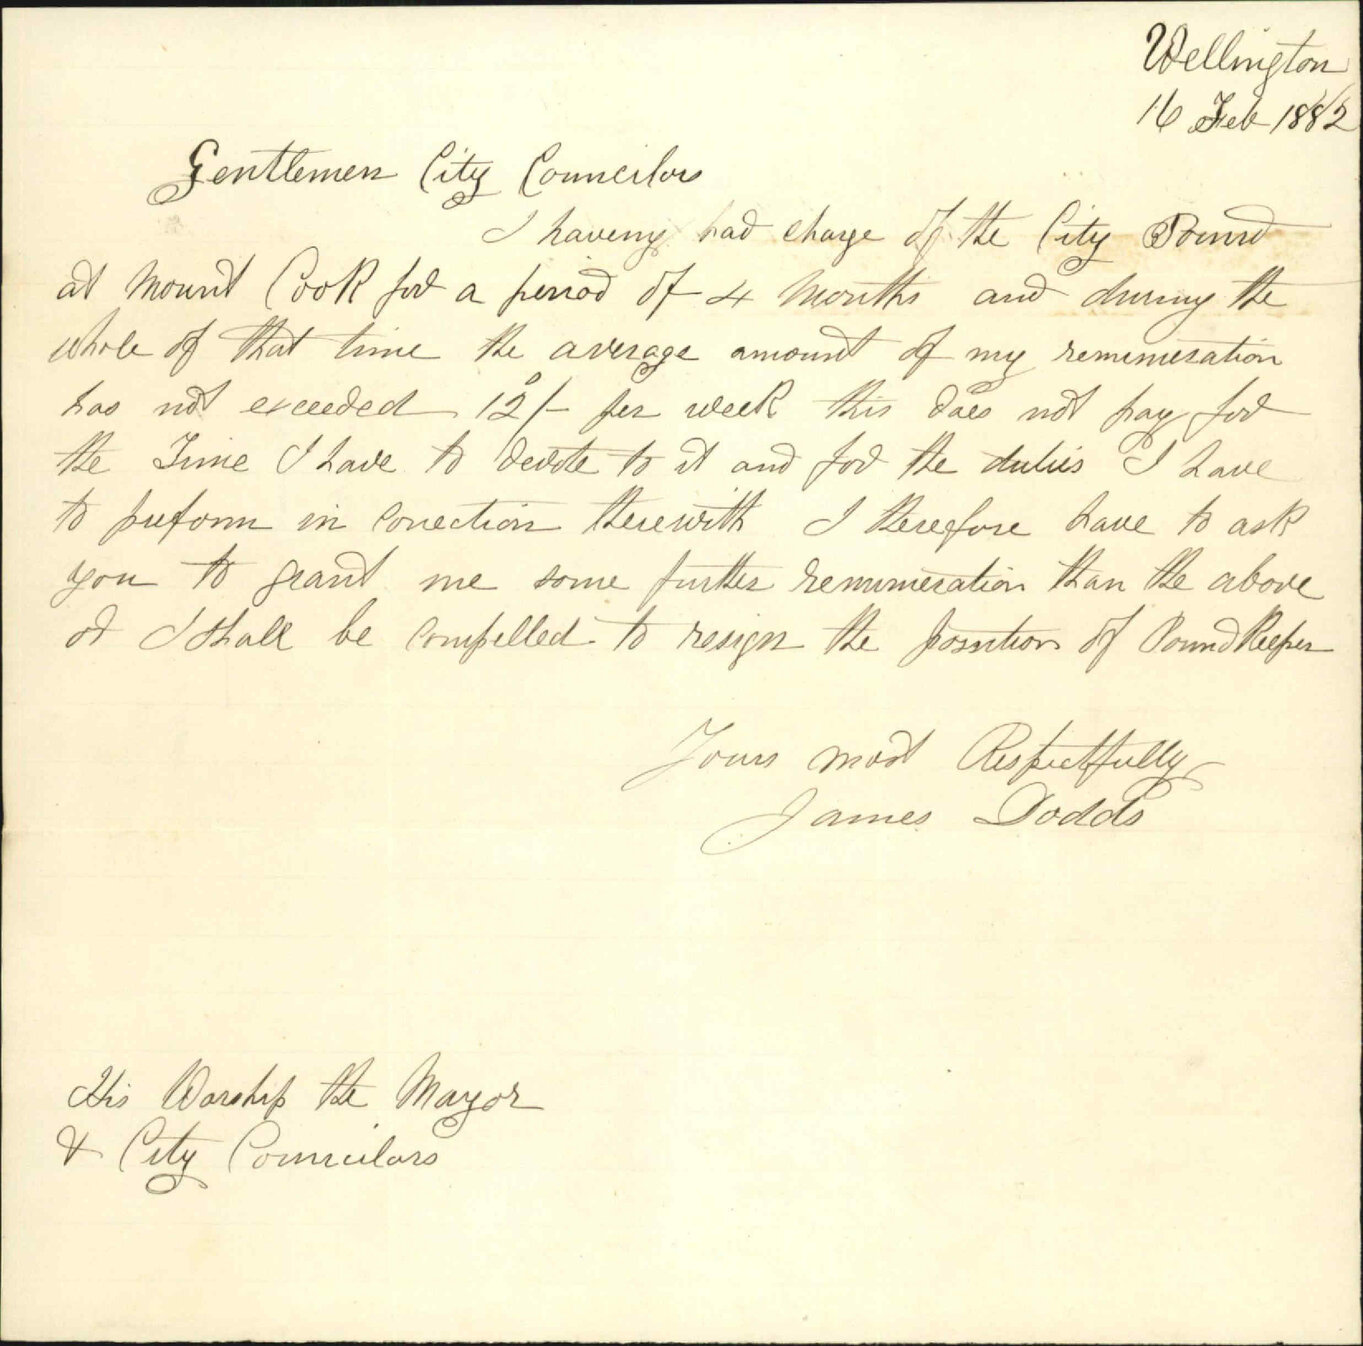 Wellington
16 Feb 1882
Gentlemen City Councilors
I haveing had charge of the City Pound
at Mount Cook for a period of 4 Months and during the
whole of that time the average amount of my remuneration
has not exceeded 12/- per week this does not pay for
the Time I have to devote to it and for the duties I have
to preform in conection therewith I therefore have to ask
you to grant me some further remumeration than the above
or I shall be compelled to resign the position of Pound Keeper
Yours most Respectfully
James Dodds
His Worship the Mayor
& City Councilors